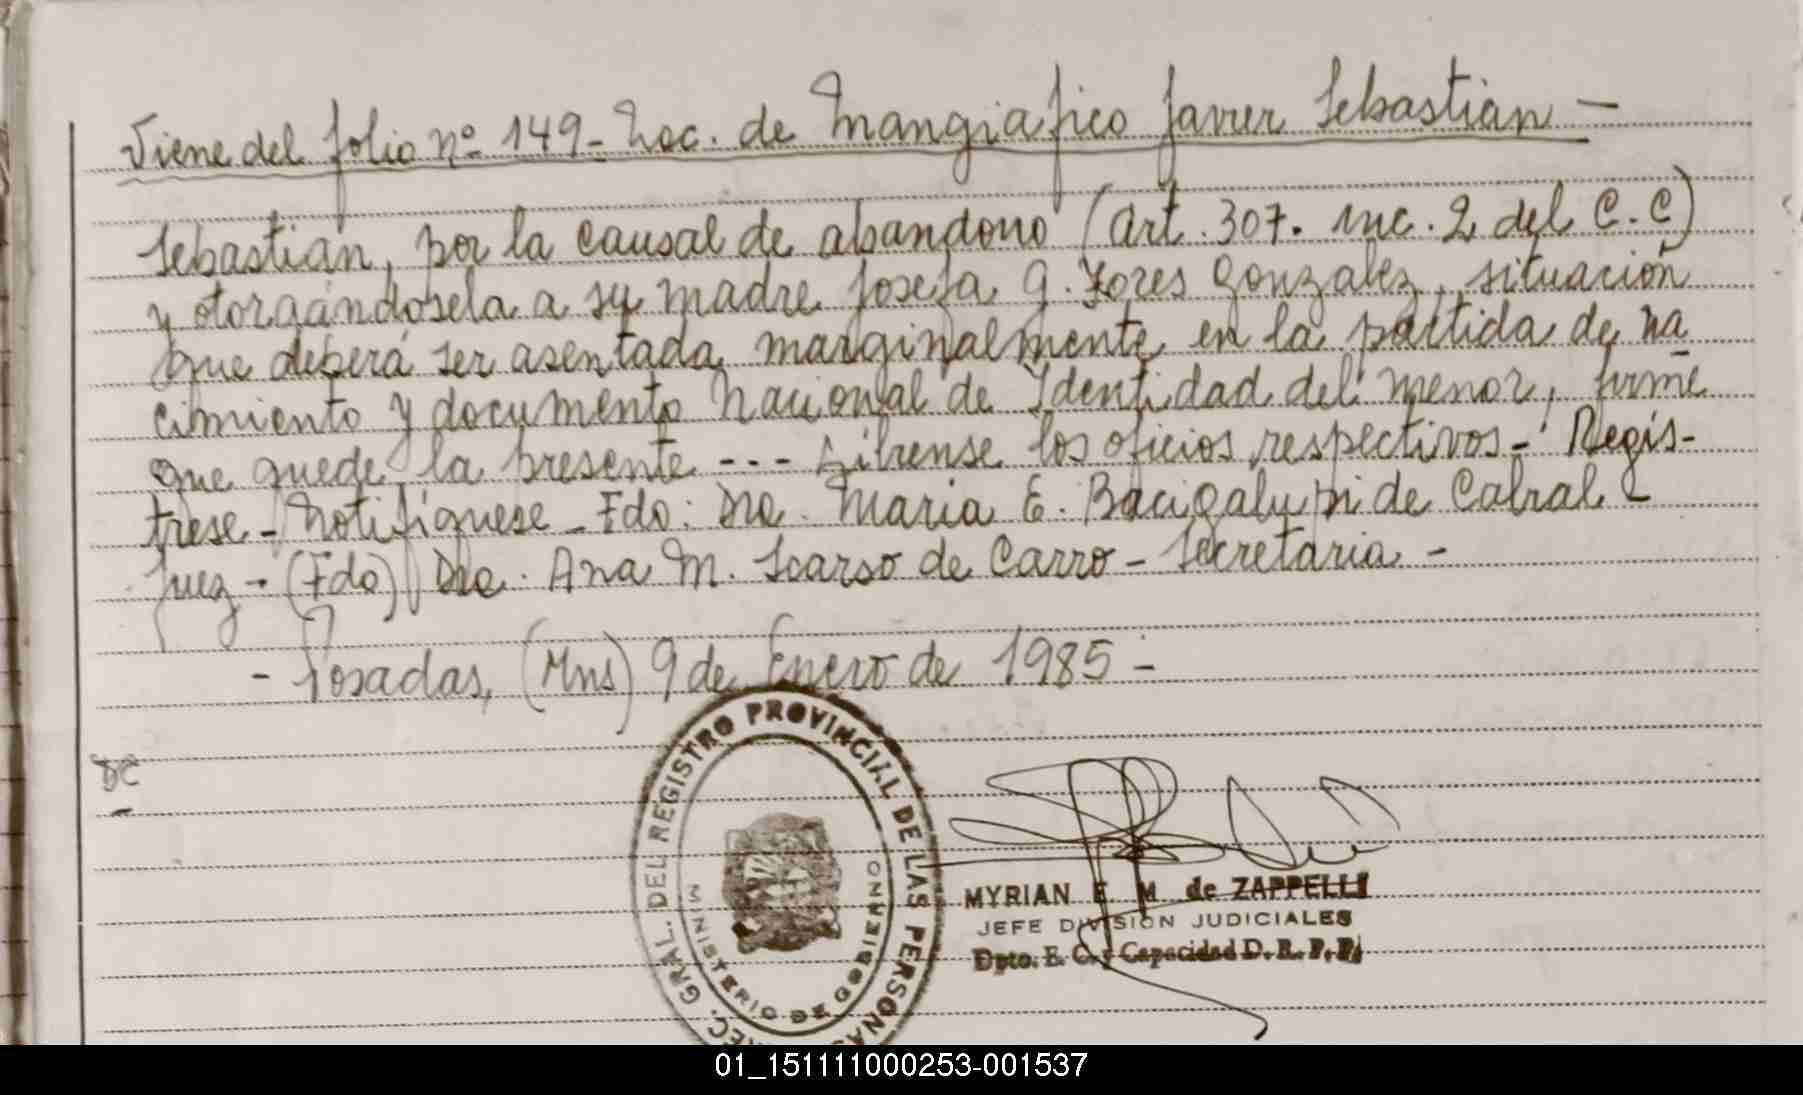 Viene del folio nº 149 - Loc. de Mangiafico Javier Sebastián -
Sebastián, por la causal de abandono (Art. 307. inc. 2 del C.C)
y otorgándosela a su madre Josefa G. Fores Gonzalez, situación
que deberá ser asentada marginalmente en la partida de na
cimiento y documento Nacional de Identidad del menor, firme
que quede la presente --- Líbrense los oficios respectivos - Regís-
trese - Notifíquese - Fdo: Dra. Maria E. Bacigalupi de Cabral -
Juez - (Fdo) Dra. Ana M. Scarso de Carro - Secretaria -
- Posadas, (Mns) 9 de Enero de 1985 -
DC
REC. GRAL. DEL REGISTRO PROVINCIAL DE LAS PERSONAS
MINISTERIO DE GOBIERNO
MYRIAN E. M. de ZAPPELLI
JEFE DIVISION JUDICIALES
Dpto. E. C. y Capacidad D. R. P. P.
01_151111000253-001537